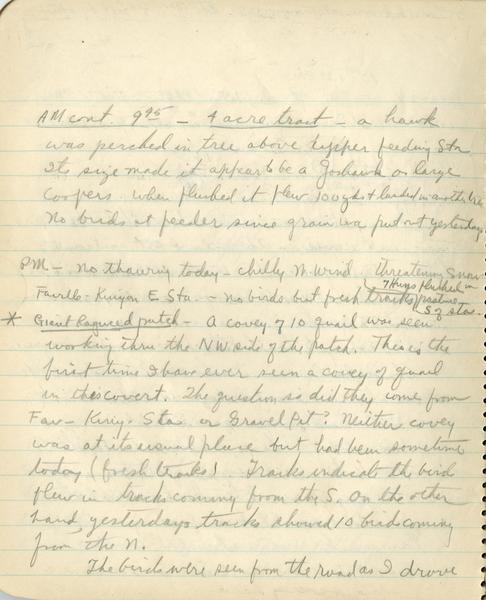 AM cont. 9:45 - 4 acre tract - a hawk
was perched in tree above hopper feeding Sta
Its size made it appear to be a Goshawk or large
Coopers when flushed it flew 100 yds + landed in another tree
No birds at feeder since grain was put out yesterday.
PM - No thawing today - chilly N. Wind. threatening Snow
7 Hungs flushed in
Faville-Kinyon E. Sta. - no birds but fresh tracks pasture
S of sta.
* Giant Ragweed patch - A covey of 10 quail was seen
working thru the NW side of the patch. This is the
first time I have ever seen a covey of quail
in this covert. The question is did they come from
Fav - Kiny. Sta or Gravel Pit? Neither covey
was at its usual place but had been sometime
today (fresh tracks). Tracks indicate the birds
flew in tracks coming from the S. On the other
hand, yesterdays tracks showed 10 birds coming
from the N.
The birds were seen from the road as I drove